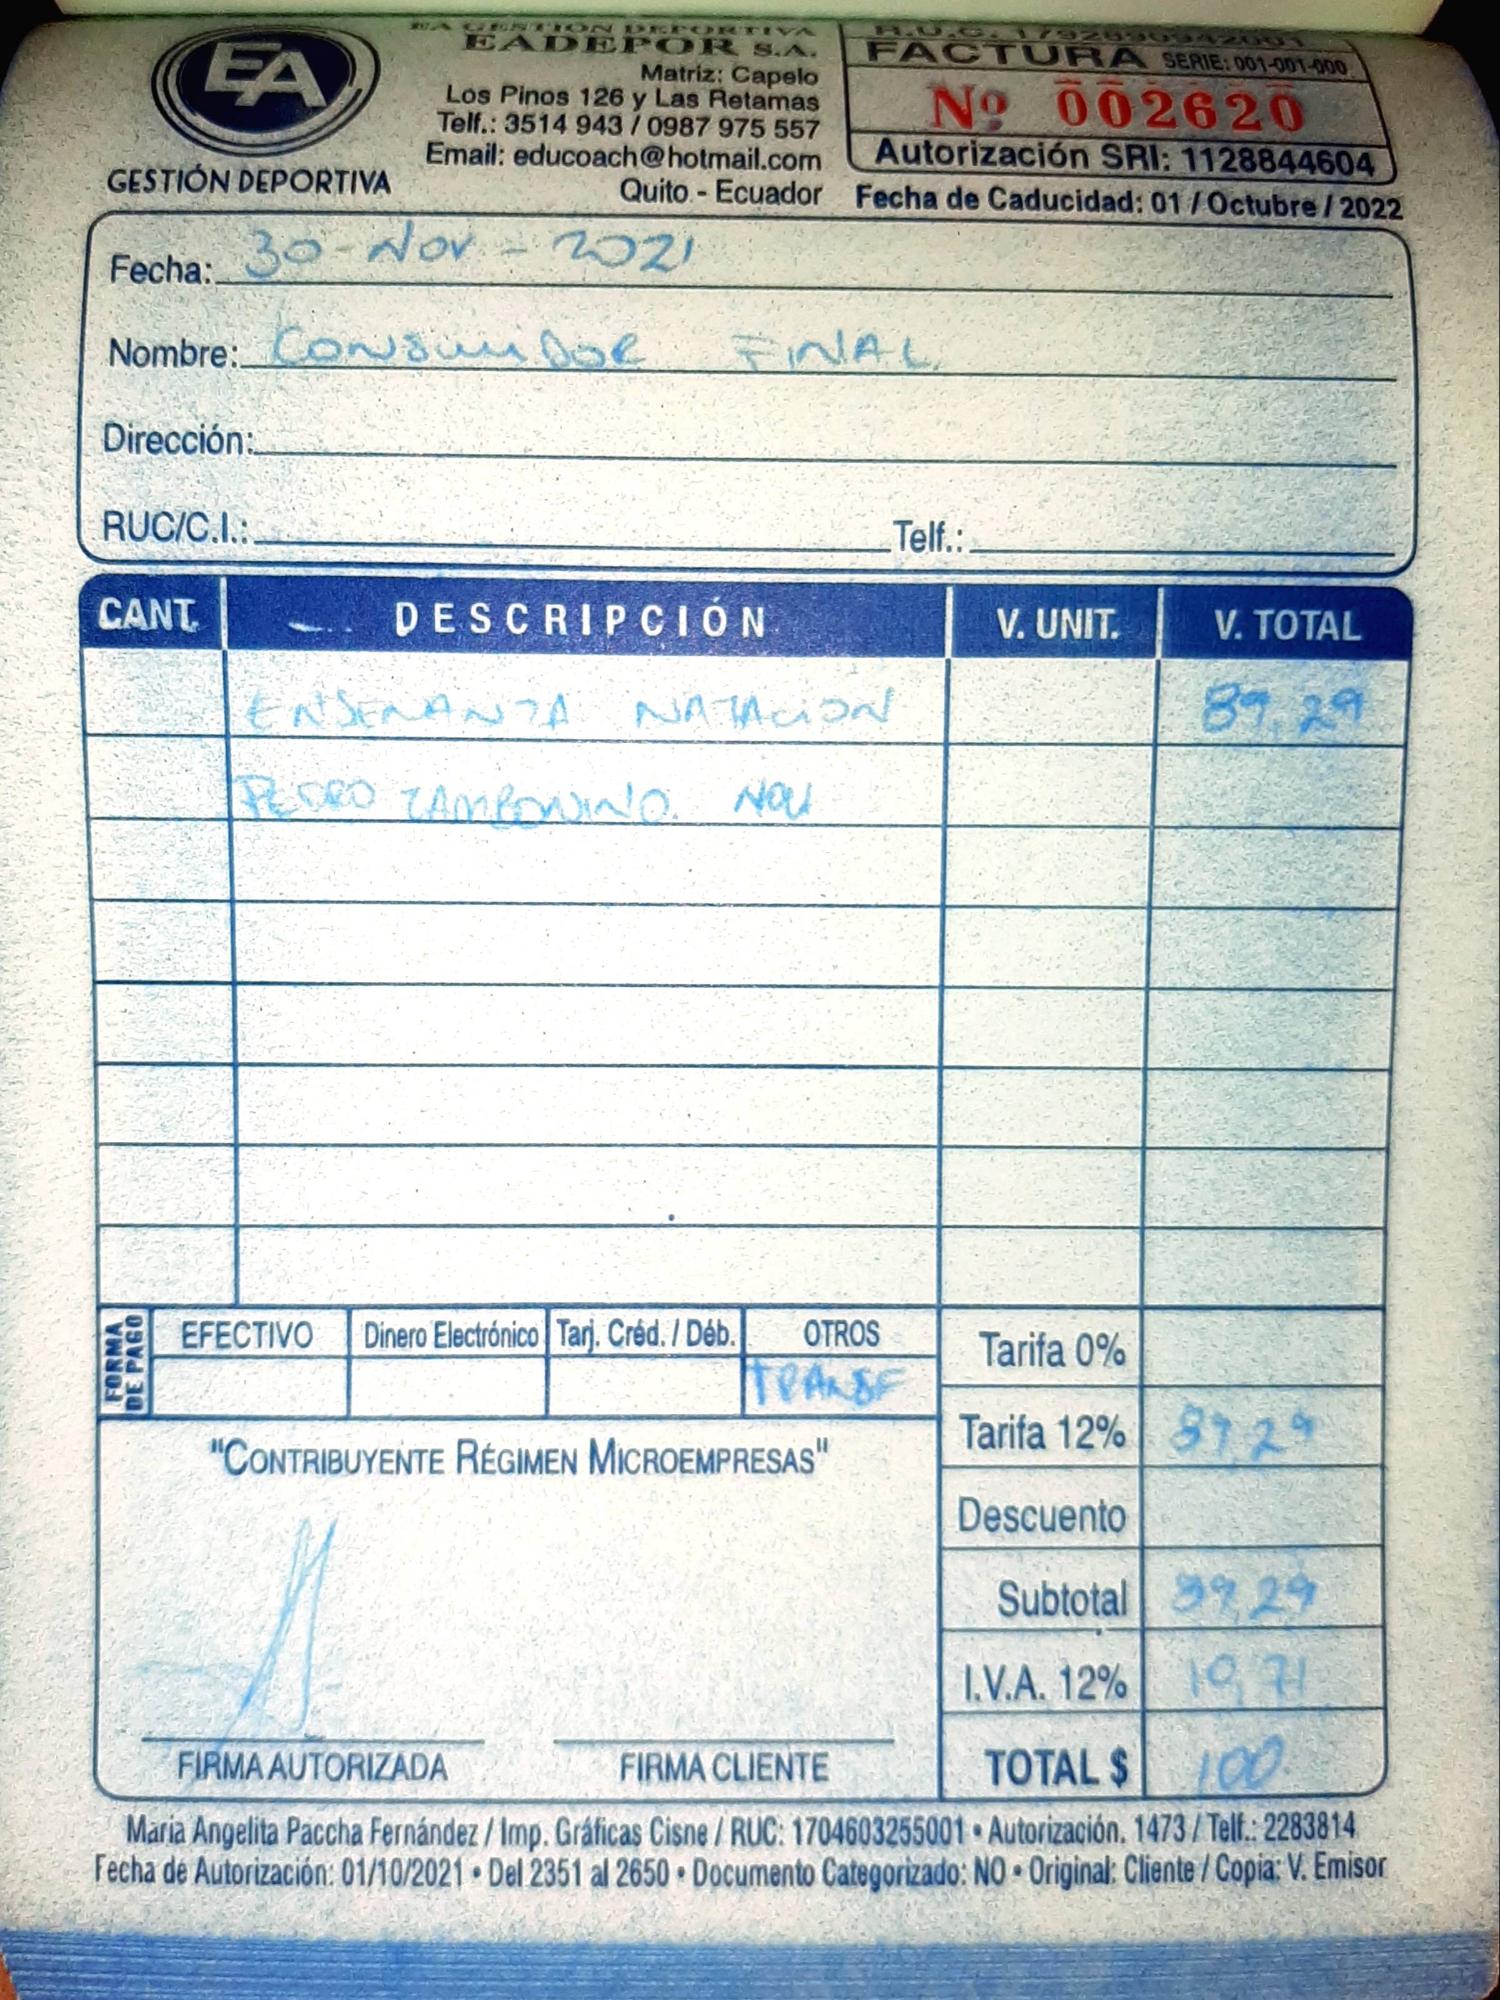 EA
GESTIÓN DEPORTIVA
EA GESTION DEPORTIVA
EADEPOR S.A.
Matriz: Capelo
Los Pinos 126 y Las Retamas
Telf.: 3514 943 / 0987 975 557
Email: educoach@hotmail.com
Quito - Ecuador
R.U.C. 1792890942001
FACTURA SERIE: 001-001-000
Nº 002620
Autorización SRI: 1128844604
Fecha de Caducidad: 01 / Octubre / 2022
Fecha: 30-Nov-2021
Nombre: CONSUMIDOR FINAL
Dirección:
RUC/C.I.: Telf.:
CANT. DESCRIPCIÓN V. UNIT. V. TOTAL
ENSENANZA NATACION 89,29
PEDRO ZAMBONINO. NOV
FORMA DE PAGO
EFECTIVO Dinero Electrónico Tarj. Créd. / Déb. OTROS
TRANSF
Tarifa 0%
Tarifa 12% 89,29
Descuento
Subtotal 89,29
I.V.A. 12% 10,71
TOTAL $ 100
"CONTRIBUYENTE RÉGIMEN MICROEMPRESAS"
FIRMA AUTORIZADA FIRMA CLIENTE
Maria Angelita Paccha Fernández / Imp. Gráficas Cisne / RUC: 1704603255001 • Autorización. 1473 / Telf.: 2283814
Fecha de Autorización: 01/10/2021 • Del 2351 al 2650 • Documento Categorizado: NO • Original: Cliente / Copia: V. Emisor